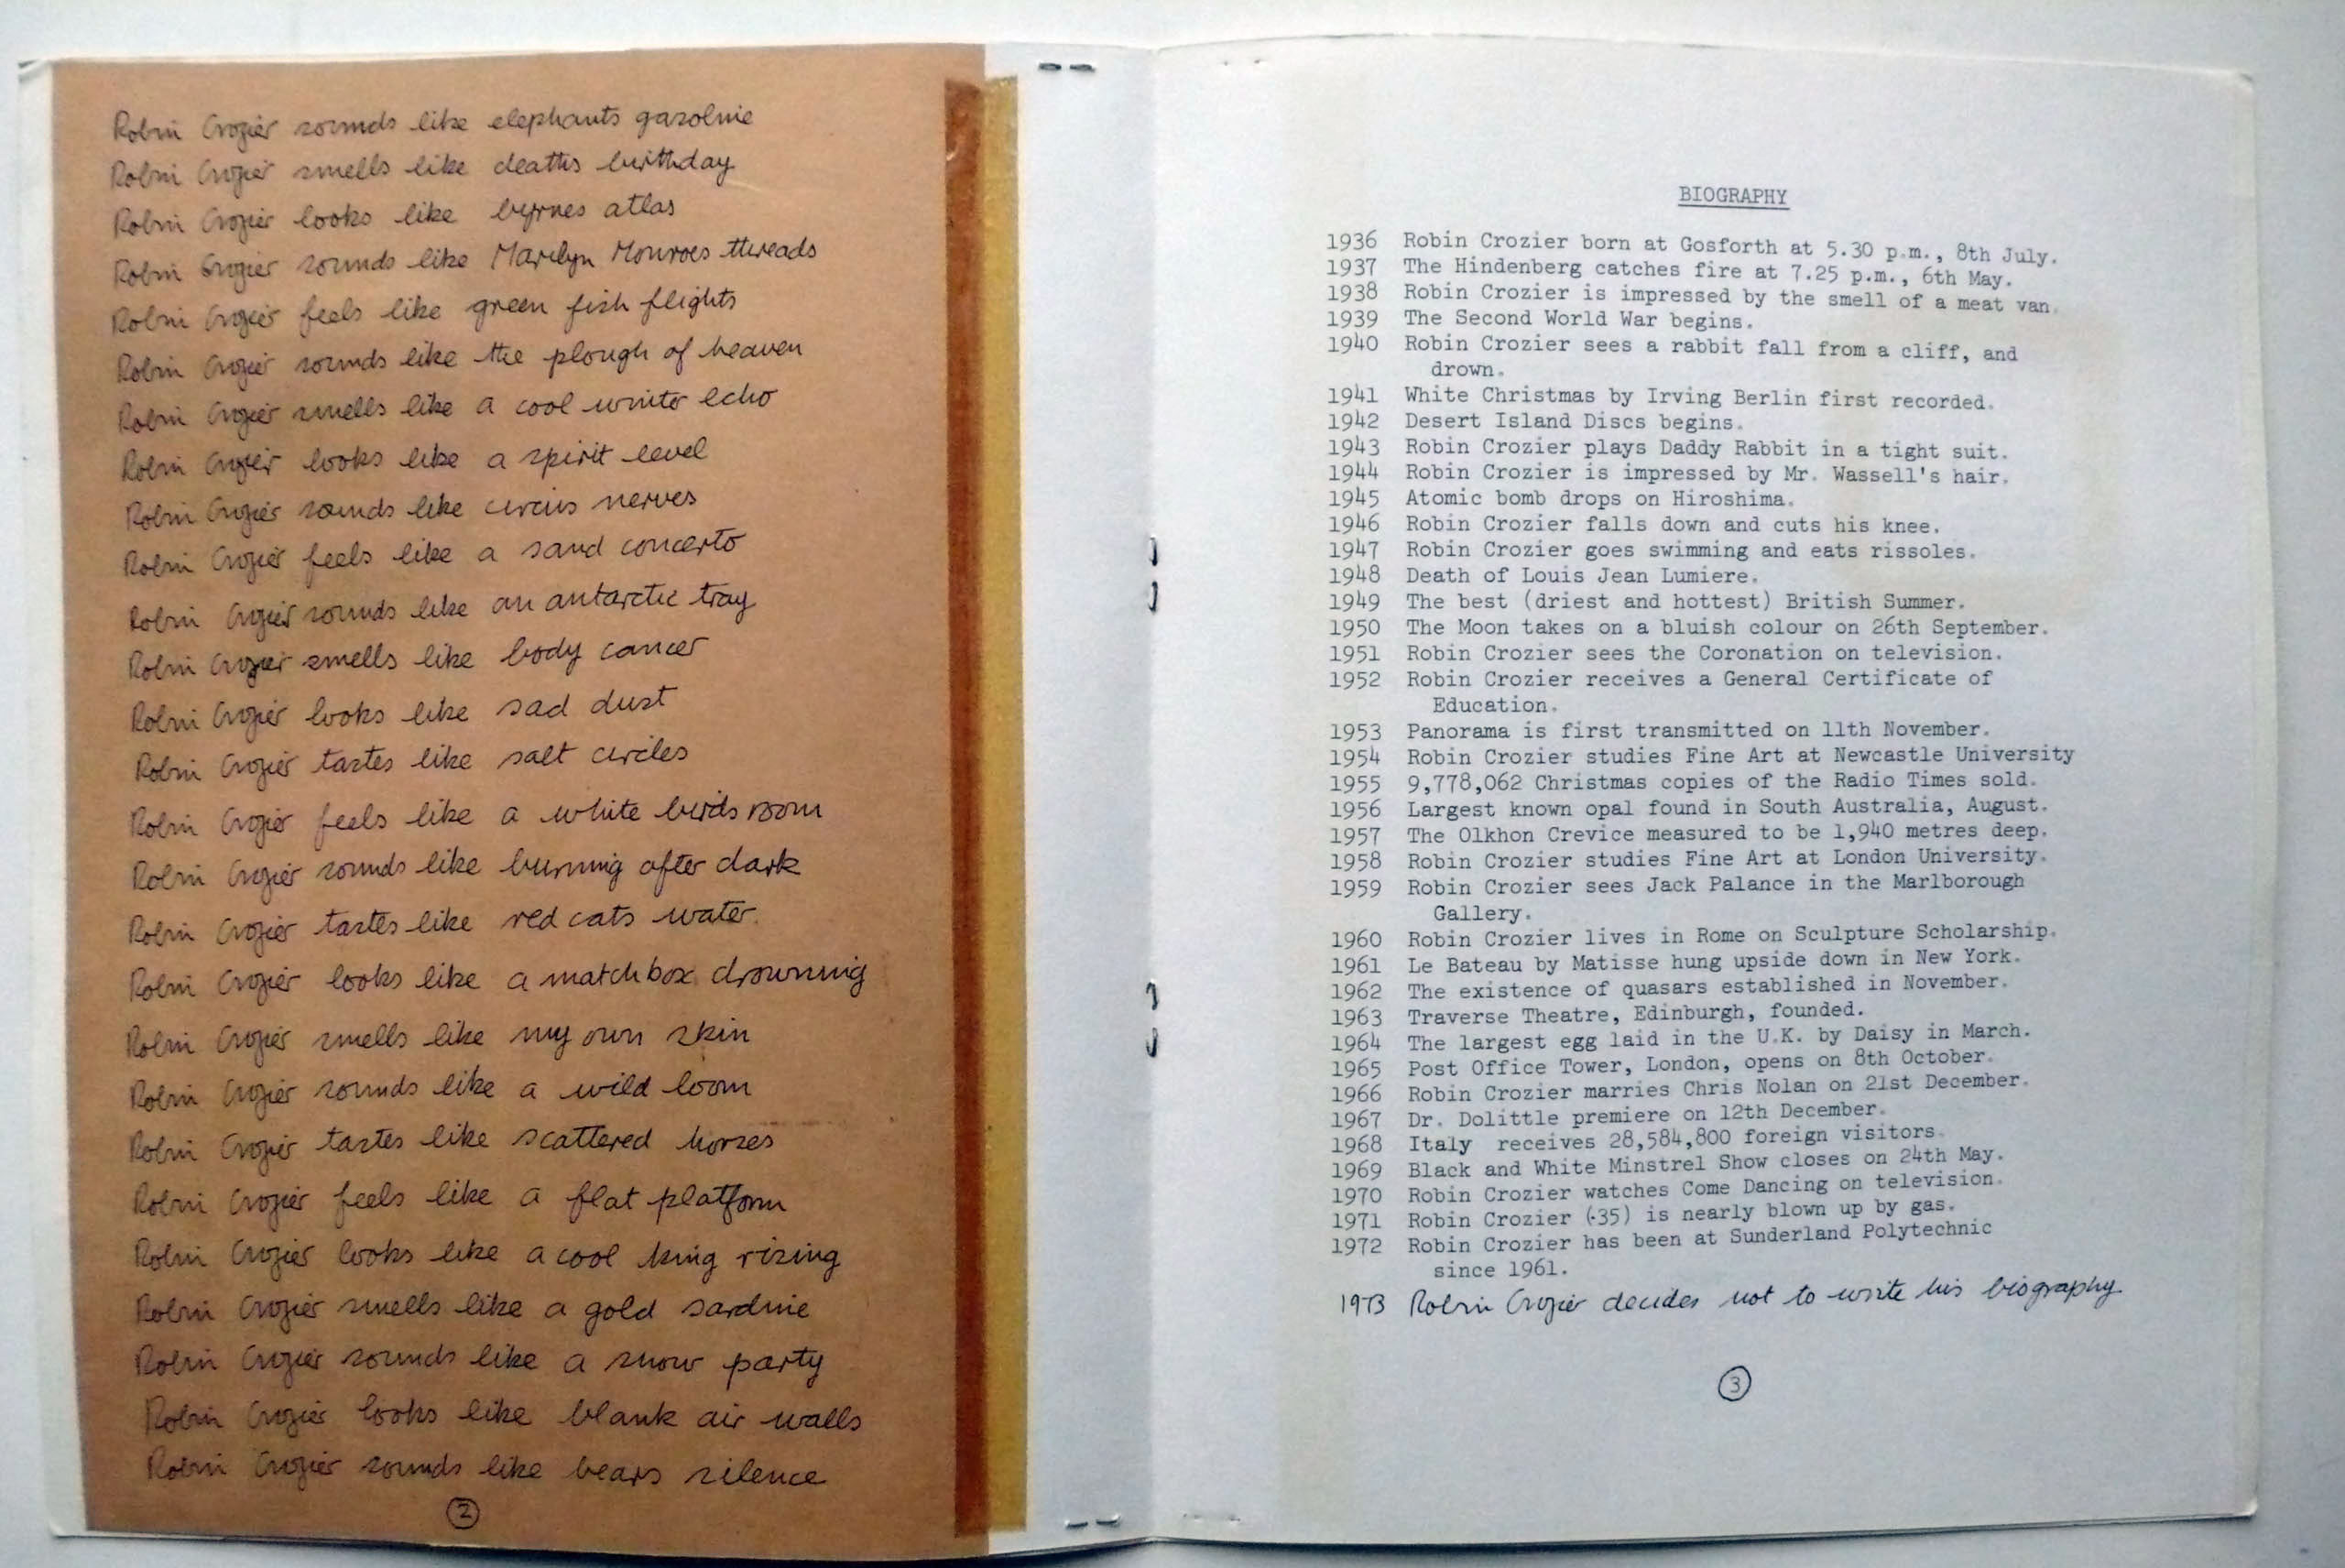 Robin Crozier sounds like elephants gazolnie
Robin Crozier smells like deaths birthday
Robin Crozier looks like byrnes atlas
Robin Crozier sounds like Marilyn Monroes threads
Robin Crozier feels like green fish flights
Robin Crozier sounds like the plough of heaven
Robin Crozier smells like a cool winter echo
Robin Crozier looks like a spirit level
Robin Crozier sounds like circus nerves
Robin Crozier feels like a sand concerto
Robin Crozier sounds like an antarctic tray
Robin Crozier smells like body cancer
Robin Crozier looks like sad dust
Robin Crozier tastes like salt circles
Robin Crozier feels like a white birds room
Robin Crozier sounds like burning after dark
Robin Crozier tastes like red cats water
Robin Crozier looks like a matchbox drowning
Robin Crozier smells like my own skin
Robin Crozier sounds like a wild loom
Robin Crozier tastes like scattered horses
Robin Crozier feels like a flat platform
Robin Crozier looks like a cool king rising
Robin Crozier smells like a gold sardine
Robin Crozier sounds like a snow party
Robin Crozier looks like blank air walls
Robin Crozier sounds like bears silence
2
BIOGRAPHY
1936 Robin Crozier born at Gosforth at 5.30 p.m., 8th July.
1937 The Hindenberg catches fire at 7.25 p.m., 6th May.
1938 Robin Crozier is impressed by the smell of a meat van.
1939 The Second World War begins.
1940 Robin Crozier sees a rabbit fall from a cliff, and
drown.
1941 White Christmas by Irving Berlin first recorded.
1942 Desert Island Discs begins.
1943 Robin Crozier plays Daddy Rabbit in a tight suit.
1944 Robin Crozier is impressed by Mr. Wassell's hair.
1945 Atomic bomb drops on Hiroshima.
1946 Robin Crozier falls down and cuts his knee.
1947 Robin Crozier goes swimming and eats rissoles.
1948 Death of Louis Jean Lumiere.
1949 The best (driest and hottest) British Summer.
1950 The Moon takes on a bluish colour on 26th September.
1951 Robin Crozier sees the Coronation on television.
1952 Robin Crozier receives a General Certificate of
Education.
1953 Panorama is first transmitted on 11th November.
1954 Robin Crozier studies Fine Art at Newcastle University
1955 9,778,062 Christmas copies of the Radio Times sold.
1956 Largest known opal found in South Australia, August.
1957 The Olkhon Crevice measured to be 1,940 metres deep.
1958 Robin Crozier studies Fine Art at London University.
1959 Robin Crozier sees Jack Palance in the Marlborough
Gallery.
1960 Robin Crozier lives in Rome on Sculpture Scholarship.
1961 Le Bateau by Matisse hung upside down in New York.
1962 The existence of quasars established in November.
1963 Traverse Theatre, Edinburgh, founded.
1964 The largest egg laid in the U.K. by Daisy in March.
1965 Post Office Tower, London, opens on 8th October.
1966 Robin Crozier marries Chris Nolan on 21st December.
1967 Dr. Dolittle premiere on 12th December.
1968 Italy receives 28,584,800 foreign visitors.
1969 Black and White Minstrel Show closes on 24th May.
1970 Robin Crozier watches Come Dancing on television.
1971 Robin Crozier (-35) is nearly blown up by gas.
1972 Robin Crozier has been at Sunderland Polytechnic
since 1961.
1973 Robin Crozier decides not to write his biography
3